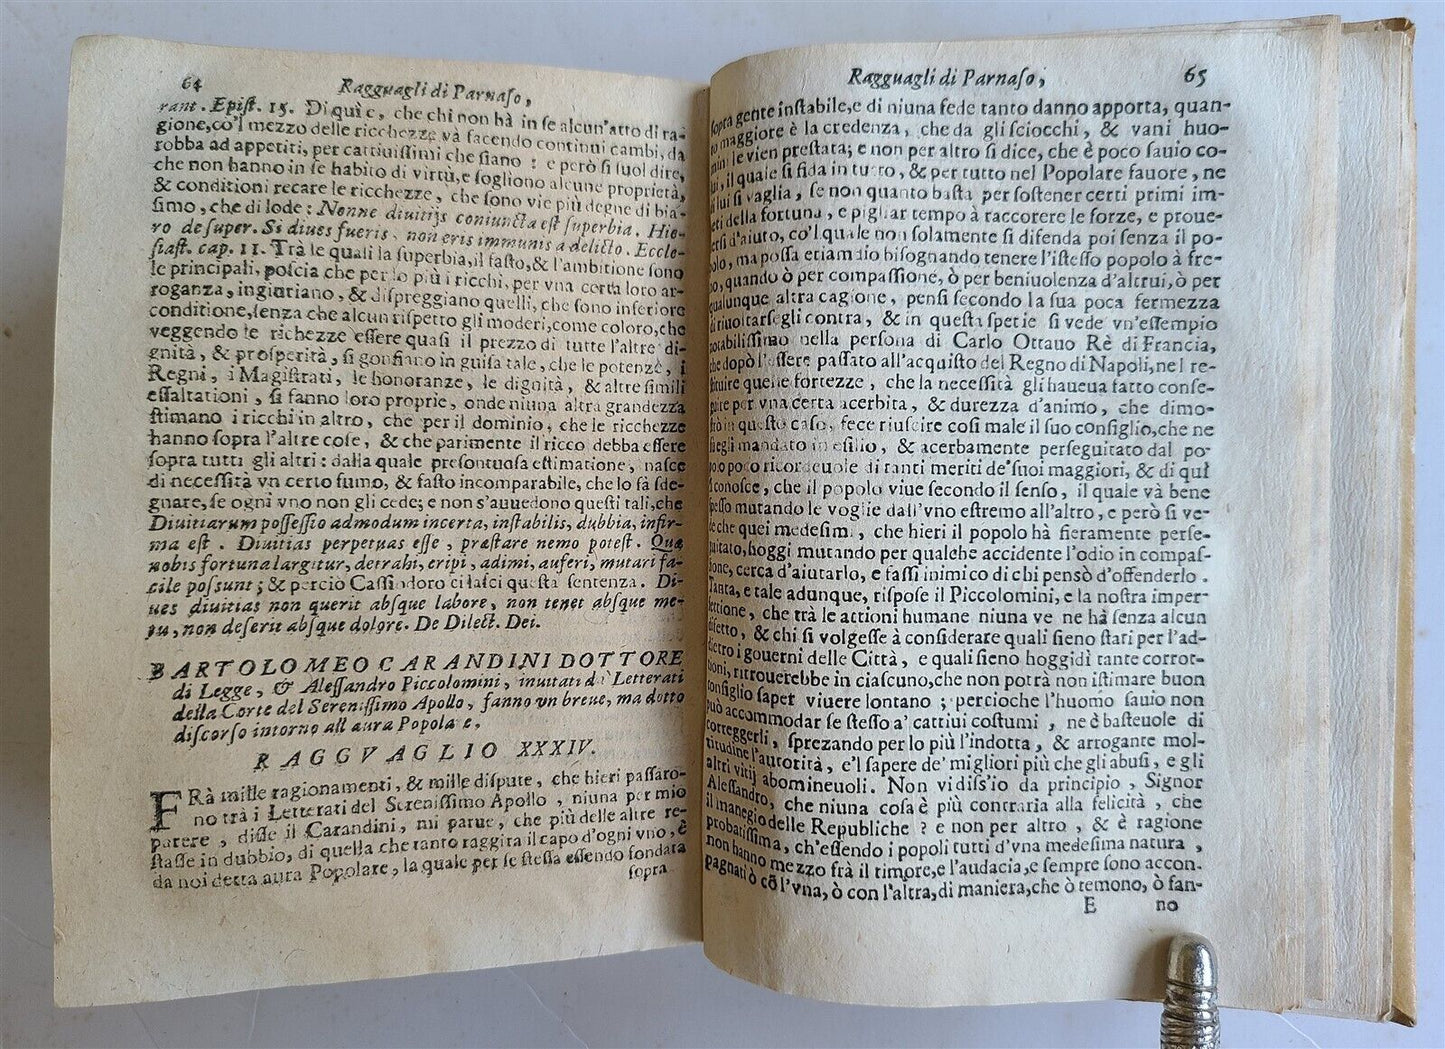 64 Ragguagli di Parnaſo,
rant. Epiſt. 15. Di quì è, che chi non hà in ſe alcun'atto di ra-
gione, co'l mezzo delle ricchezze và facendo continui cambi, da
robba ad appetiti, per cattiuiſſimi che ſiano : e però ſi ſuol dire,
che non hanno in ſe habito di virtù, e ſogliono alcune proprietà,
& conditioni recare le ricchezze, che ſono vie più degne di bia-
ſimo, che di lode : Nonne diuitijs coniuncta eſt ſuperbia. Hie-
ro de ſuper. Si diues fueris, non eris immunis a delicto. Eccle-
ſiaſt. cap. 11. Trà le quali la ſuperbia, il faſto, & l'ambitione ſono
le principali, poſcia che per lo più i ricchi, per vna certa loro ar-
roganza, ingiuriano, & diſpreggiano quelli, che ſono inferiore
conditione, ſenza che alcun riſpetto gli moderi, come coloro, che
veggendo le richezze eſſere quaſi il prezzo di tutte l'altre di-
gnità, & proſperità, ſi gonfiano in guiſa tale, che le potenze, i
Regni, i Magiſtrati, le honoranze, le dignità, & altre ſimili
eſſaltationi, ſi fanno loro proprie, onde niuna altra grandezza
ſtimano i ricchi in altro, che per il dominio, che le ricchezze
hanno ſopra l'altre coſe, & che parimente il ricco debba eſſere
ſopra tutti gli altri : dalla quale preſontuoſa eſtimatione, naſce
di neceſſità vn certo fumo, & faſto incomparabile, che lo fà ſde-
gnare, ſe ogni vno non gli cede; e non s'auuedono queſti tali, che
Diuitiarum poſſeſſio admodum incerta, inſtabilis, dubbia, infir-
ma eſt . Diuitias perpetuas eſſe , præſtare nemo poteſt. Quæ
nobis fortuna largitur, detrahi, eripi , adimi, auferi, mutari fa-
cile poſſunt ; & perciò Caſſiodoro ci laſciò queſta ſentenza. Di-
ues diuitias non querit abſque labore, non tenet abſque me-
tu, non deſerit abſque dolore. De Dilect. Dei.
BARTOLOMEO CARANDINI DOTTORE
di Legge, & Aleſſandro Piccolomini, inuitati da Letterati
della Corte del Sereniſſimo Apollo, fanno vn breue, ma dotto
diſcorſo intorno all aura Popolare.
RAGGVAGLIO XXXIV.
FRà mille ragionamenti, & mille diſpute, che hieri paſſaro-
no trà i Letterati del Sereniſſimo Apollo , niuna per mio
parere , diſſe il Carandini, mi parue, che più delle altre re-
ſtaſſe in dubbio, di quella che tanto raggira il capo d'ogni vno, è
da noi detta aura Popolare, la quale per ſe ſteſſa eſſendo fondata
ſopra
Ragguagli di Parnaſo, 65
ſopra gente inſtabile, e di niuna fede tanto danno apporta, quan-
to maggiore è la credenza, che da gli ſciocchi, & vani huo-
mini le vien preſtata; e non per altro ſi dice, che è poco ſauio co-
lui, il quale ſi fida in tutto, & per tutto nel Popolare fauore, ne
di lui ſi vaglia, ſe non quanto baſta per ſoſtener certi primi im-
peti della fortuna, e pigliar tempo à raccorere le forze, e proue-
derſi d'aiuto, co'l quale non ſolamente ſi difenda poi ſenza il po-
polo, ma poſſa etiamdio biſognando tenere l'iſteſſo popolo à fre-
no, quando ò per compaſſione, ò per beniuolenza d'altrui, ò per
qualunque altra cagione, penſi ſecondo la ſua poca fermezza
di riuoltarſegli contra, & in queſta ſpetie ſi vede vn'eſſempio
notabiliſſimo nella perſona di Carlo Ottauo Rè di Francia,
che dopò l'eſſere paſſato all'acquiſto del Regno di Napoli, nel re-
ſtituire quelle fortezze , che la neceſſità gli haueua fatto conſe-
guire per vna certa acerbità, & durezza d'animo, che dimo-
ſtrò in queſto caſo, fece riuſcire coſi male il ſuo conſiglio, che ne
fù egli mandato in eſilio , & acerbamente perſeguitato dal po-
polo poco ricordeuole di tanti meriti de' ſuoi maggiori, & di quì
ſi conoſce, che il popolo viue ſecondo il ſenſo, il quale và bene
ſpeſſo mutando le voglie dall'vno eſtremo all'altro, e però ſi ve-
de che quei medeſimi, che hieri il popolo hà fieramente perſe-
guitato, hoggi mutando per qualche accidente l'odio in compaſ-
ſione, cerca d'aiutarlo, e faſſi inimico di chi pensò d'offenderlo .
Tanta, e tale adunque, riſpoſe il Piccolomini, e la noſtra imper-
fettione, che trà le actioni humane niuna ve ne hà ſenza alcun
difetto, & chi ſi volgeſſe à conſiderare quali ſieno ſtati per l'ad-
dietro i gouerni delle Città, e quali ſieno hoggidì tante corrot-
tioni, ritrouerebbe in ciaſcuno, che non potrà non iſtimare buon
conſiglio ſaper viuere lontano ; percioche l'huomo ſauio non
può accommodar ſe ſteſſo a' cattiui coſtumi , ne è baſteuole di
correggerli, ſprezando per lo più l'indotta, & arrogante mol-
titudine l'autorità, e'l ſapere de' migliori più che gli abuſi, e gli
altri vitij abomineuoli. Non vidiſs'io da principio , Signor
Aleſſandro, che niuna coſa è più contraria alla felicità , che
il manegio delle Republiche ? e non per altro , & è ragione
probatiſſima, ch'eſſendo i popoli tutti d'vna medeſima natura ,
non hanno mezzo frà il timore, e l'audacia, e ſempre ſono accon-
pagnati ò cõ l'vna, ò con l'altra, di maniera, che ò temono, ò fan-
E no